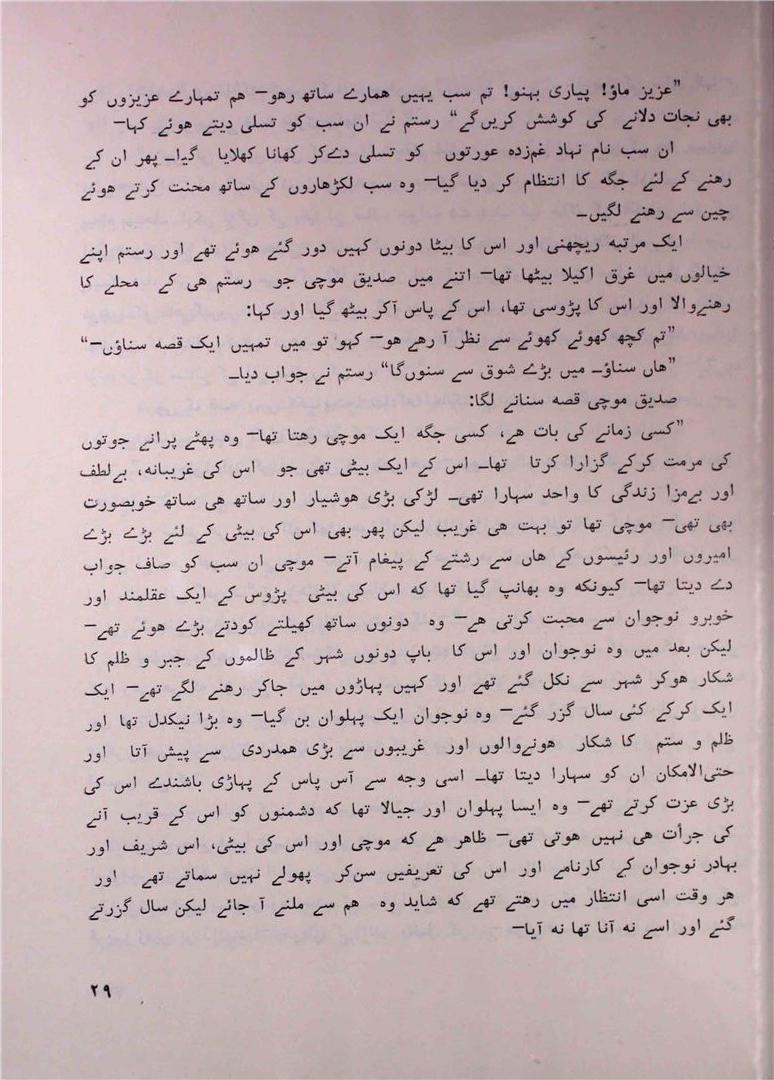 "عزیز ماؤ! پیاری بہنو! تم سب یہیں ھمارے ساتھ رھو— ھم تمہارے عزیزوں کو
بھی نجات دلانے کی کوشش کریں گے" رستم نے ان سب کو تسلی دیتے ھوئے کہا—
ان سب نام نہاد غم زدہ عورتوں کو تسلی دے کر کھانا کھلایا گیا۔ پھر ان کے
رھنے کے لئے جگہ کا انتظام کر دیا گیا— وہ سب لکڑھاروں کے ساتھ محنت کرتے ھوئے
چین سے رھنے لگیں۔
ایک مرتبہ ریچھنی اور اس کا بیٹا دونوں کہیں دور گئے ھوئے تھے اور رستم اپنے
خیالوں میں غرق اکیلا بیٹھا تھا— اتنے میں صدیق موچی جو رستم ھی کے محلے کا
رھنے والا اور اس کا پڑوسی تھا، اس کے پاس آکر بیٹھ گیا اور کہا:
"تم کچھ کھوئے کھوئے سے نظر آ رھے ھو— کہو تو میں تمہیں ایک قصہ سناؤں—"
"ھاں سناؤ۔ میں بڑے شوق سے سنوں گا" رستم نے جواب دیا۔
صدیق موچی قصہ سنانے لگا:
"کسی زمانے کی بات ھے، کسی جگہ ایک موچی رھتا تھا— وہ پھٹے پرانے جوتوں
کی مرمت کرکے گزارا کرتا تھا۔ اس کے ایک بیٹی تھی جو اس کی غریبانہ، بے لطف
اور بے مزا زندگی کا واحد سہارا تھی۔ لڑکی بڑی ھوشیار اور ساتھ ھی ساتھ خوبصورت
بھی تھی— موچی تھا تو بہت ھی غریب لیکن پھر بھی اس کی بیٹی کے لئے بڑے بڑے
امیروں اور رئیسوں کے ھاں سے رشتے کے پیغام آتے— موچی ان سب کو صاف جواب
دے دیتا تھا— کیونکہ وہ بھانپ گیا تھا کہ اس کی بیٹی پڑوس کے ایک عقلمند اور
خوبرو نوجوان سے محبت کرتی ھے— وہ دونوں ساتھ کھیلتے کودتے بڑے ھوئے تھے—
لیکن بعد میں وہ نوجوان اور اس کا باپ دونوں شہر کے ظالموں کے جبر و ظلم کا
شکار ھوکر شہر سے نکل گئے تھے اور کہیں پہاڑوں میں جاکر رھنے لگے تھے— ایک
ایک کرکے کئی سال گزر گئے— وہ نوجوان ایک پہلوان بن گیا— وہ بڑا نیکدل تھا اور
ظلم و ستم کا شکار ھونے والوں اور غریبوں سے بڑی ھمدردی سے پیش آتا اور
حتی الامکان ان کو سہارا دیتا تھا۔ اسی وجہ سے آس پاس کے پہاڑی باشندے اس کی
بڑی عزت کرتے تھے— وہ ایسا پہلوان اور جیالا تھا کہ دشمنوں کو اس کے قریب آنے
کی جرأت ھی نہیں ھوتی تھی— ظاھر ھے کہ موچی اور اس کی بیٹی، اس شریف اور
بہادر نوجوان کے کارنامے اور اس کی تعریفیں سن کر پھولے نہیں سماتے تھے اور
ھر وقت اسی انتظار میں رھتے تھے کہ شاید وہ ھم سے ملنے آ جائے لیکن سال گزرتے
گئے اور اسے نہ آنا تھا نہ آیا—
۲۹